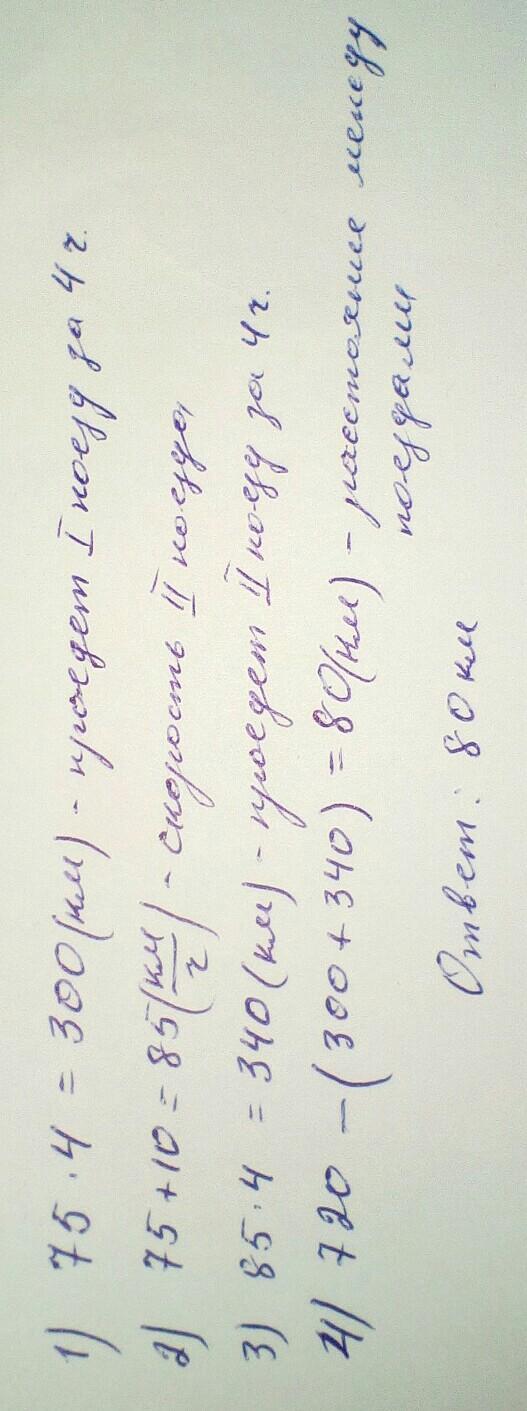 1) 75 · 4 = 300 (км) - проедет I поезд за 4 ч.
2) 75 + 10 = 85 (км/ч) - скорость II поезда
3) 85 · 4 = 340 (км) - проедет II поезд за 4 ч.
4) 720 - (300 + 340) = 80 (км) - расстояние между
поездами
Ответ: 80 км